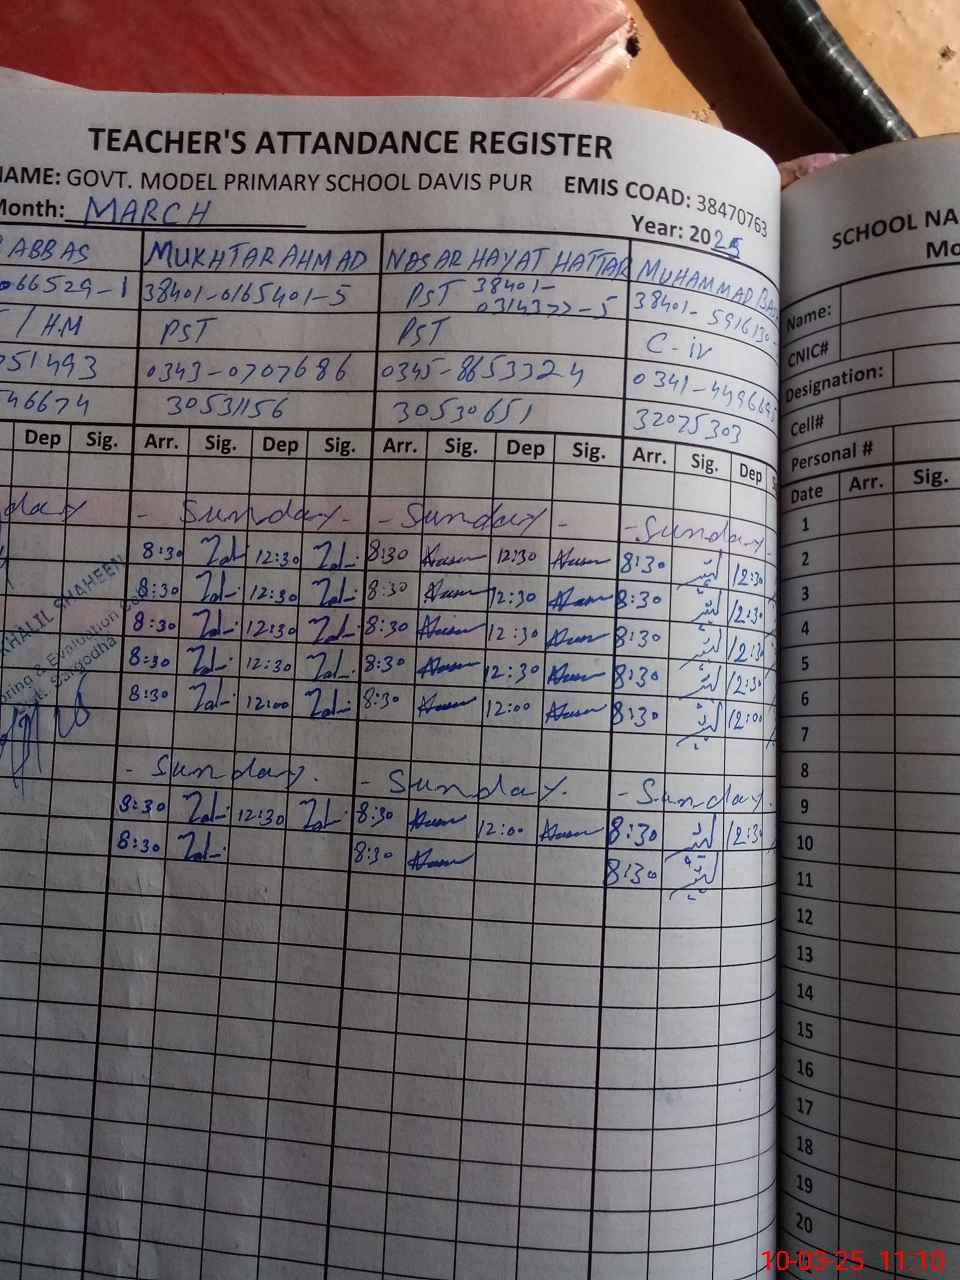 TEACHER'S ATTANDANCE REGISTER
NAME: GOVT. MODEL PRIMARY SCHOOL DAVIS PUR EMIS COAD: 38470763
Month: MARCH Year: 2025
ABBAS MUKHTAR AHMAD NASAR HAYAT HATTAR MUHAMMAD
066529-1 38401-0165401-5 PST 38401-0314377-5 38401-5916130-
/ H.M PST PST C-iv
51493 0343-0707686 0345-8653324 0341-449669
46674 30531156 30530651 32075303
Dep Sig. Arr. Sig. Dep Sig. Arr. Sig. Dep Sig. Arr. Sig. Dep
day - Sunday - - Sunday - - Sunday.
8:30 12:30 8:30 12:30 8:30 12:30
8:30 12:30 8:30 12:30 8:30 12:30
8:30 12:30 8:30 12:30 8:30 12:30
8:30 12:30 8:30 12:30 8:30 12:30
8:30 12:00 8:30 12:00 8:30 12:00
- Sunday. - Sunday. - Sunday.
8:30 12:30 8:30 12:00 8:30 12:30
8:30 8:30 8:30
KHALIL SHAHEEN
ring & Evaluation
Sargodha
SCHOOL NA
Mo
Name:
CNIC#
Designation:
Cell#
Personal #
Date Arr. Sig.
1
2
3
4
5
6
7
8
9
10
11
12
13
14
15
16
17
18
19
20
10-03-25 11:10